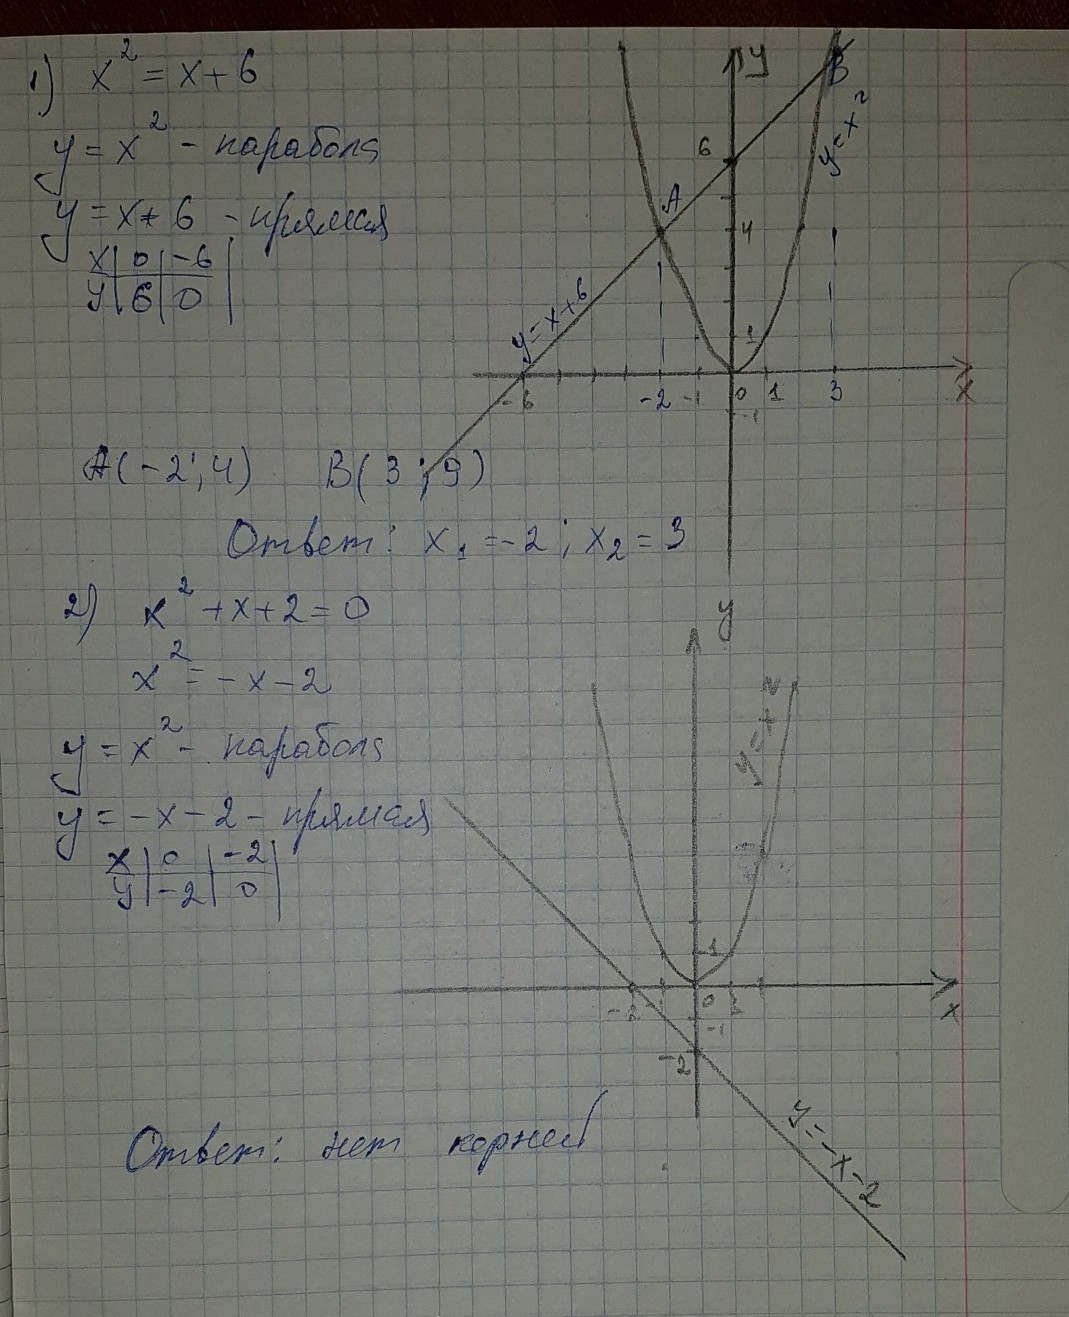 1) x² = x + 6
y = x² - парабола
y = x + 6 - прямая
x | 0 | -6 |
y | 6 | 0 |
y
B
y = x²
6
A
4
y = x + 6
1
-6 -2 -1 0 1 3 x
-1
A(-2; 4) B(3; 9)
Ответ: x₁ = -2; x₂ = 3
2) x² + x + 2 = 0
x² = -x - 2
y = x² - парабола
y = -x - 2 - прямая
x | 0 | -2 |
y | -2 | 0 |
y
y = x²
1
-2 0 x
-1
-2
y = -x - 2
Ответ: нет корней